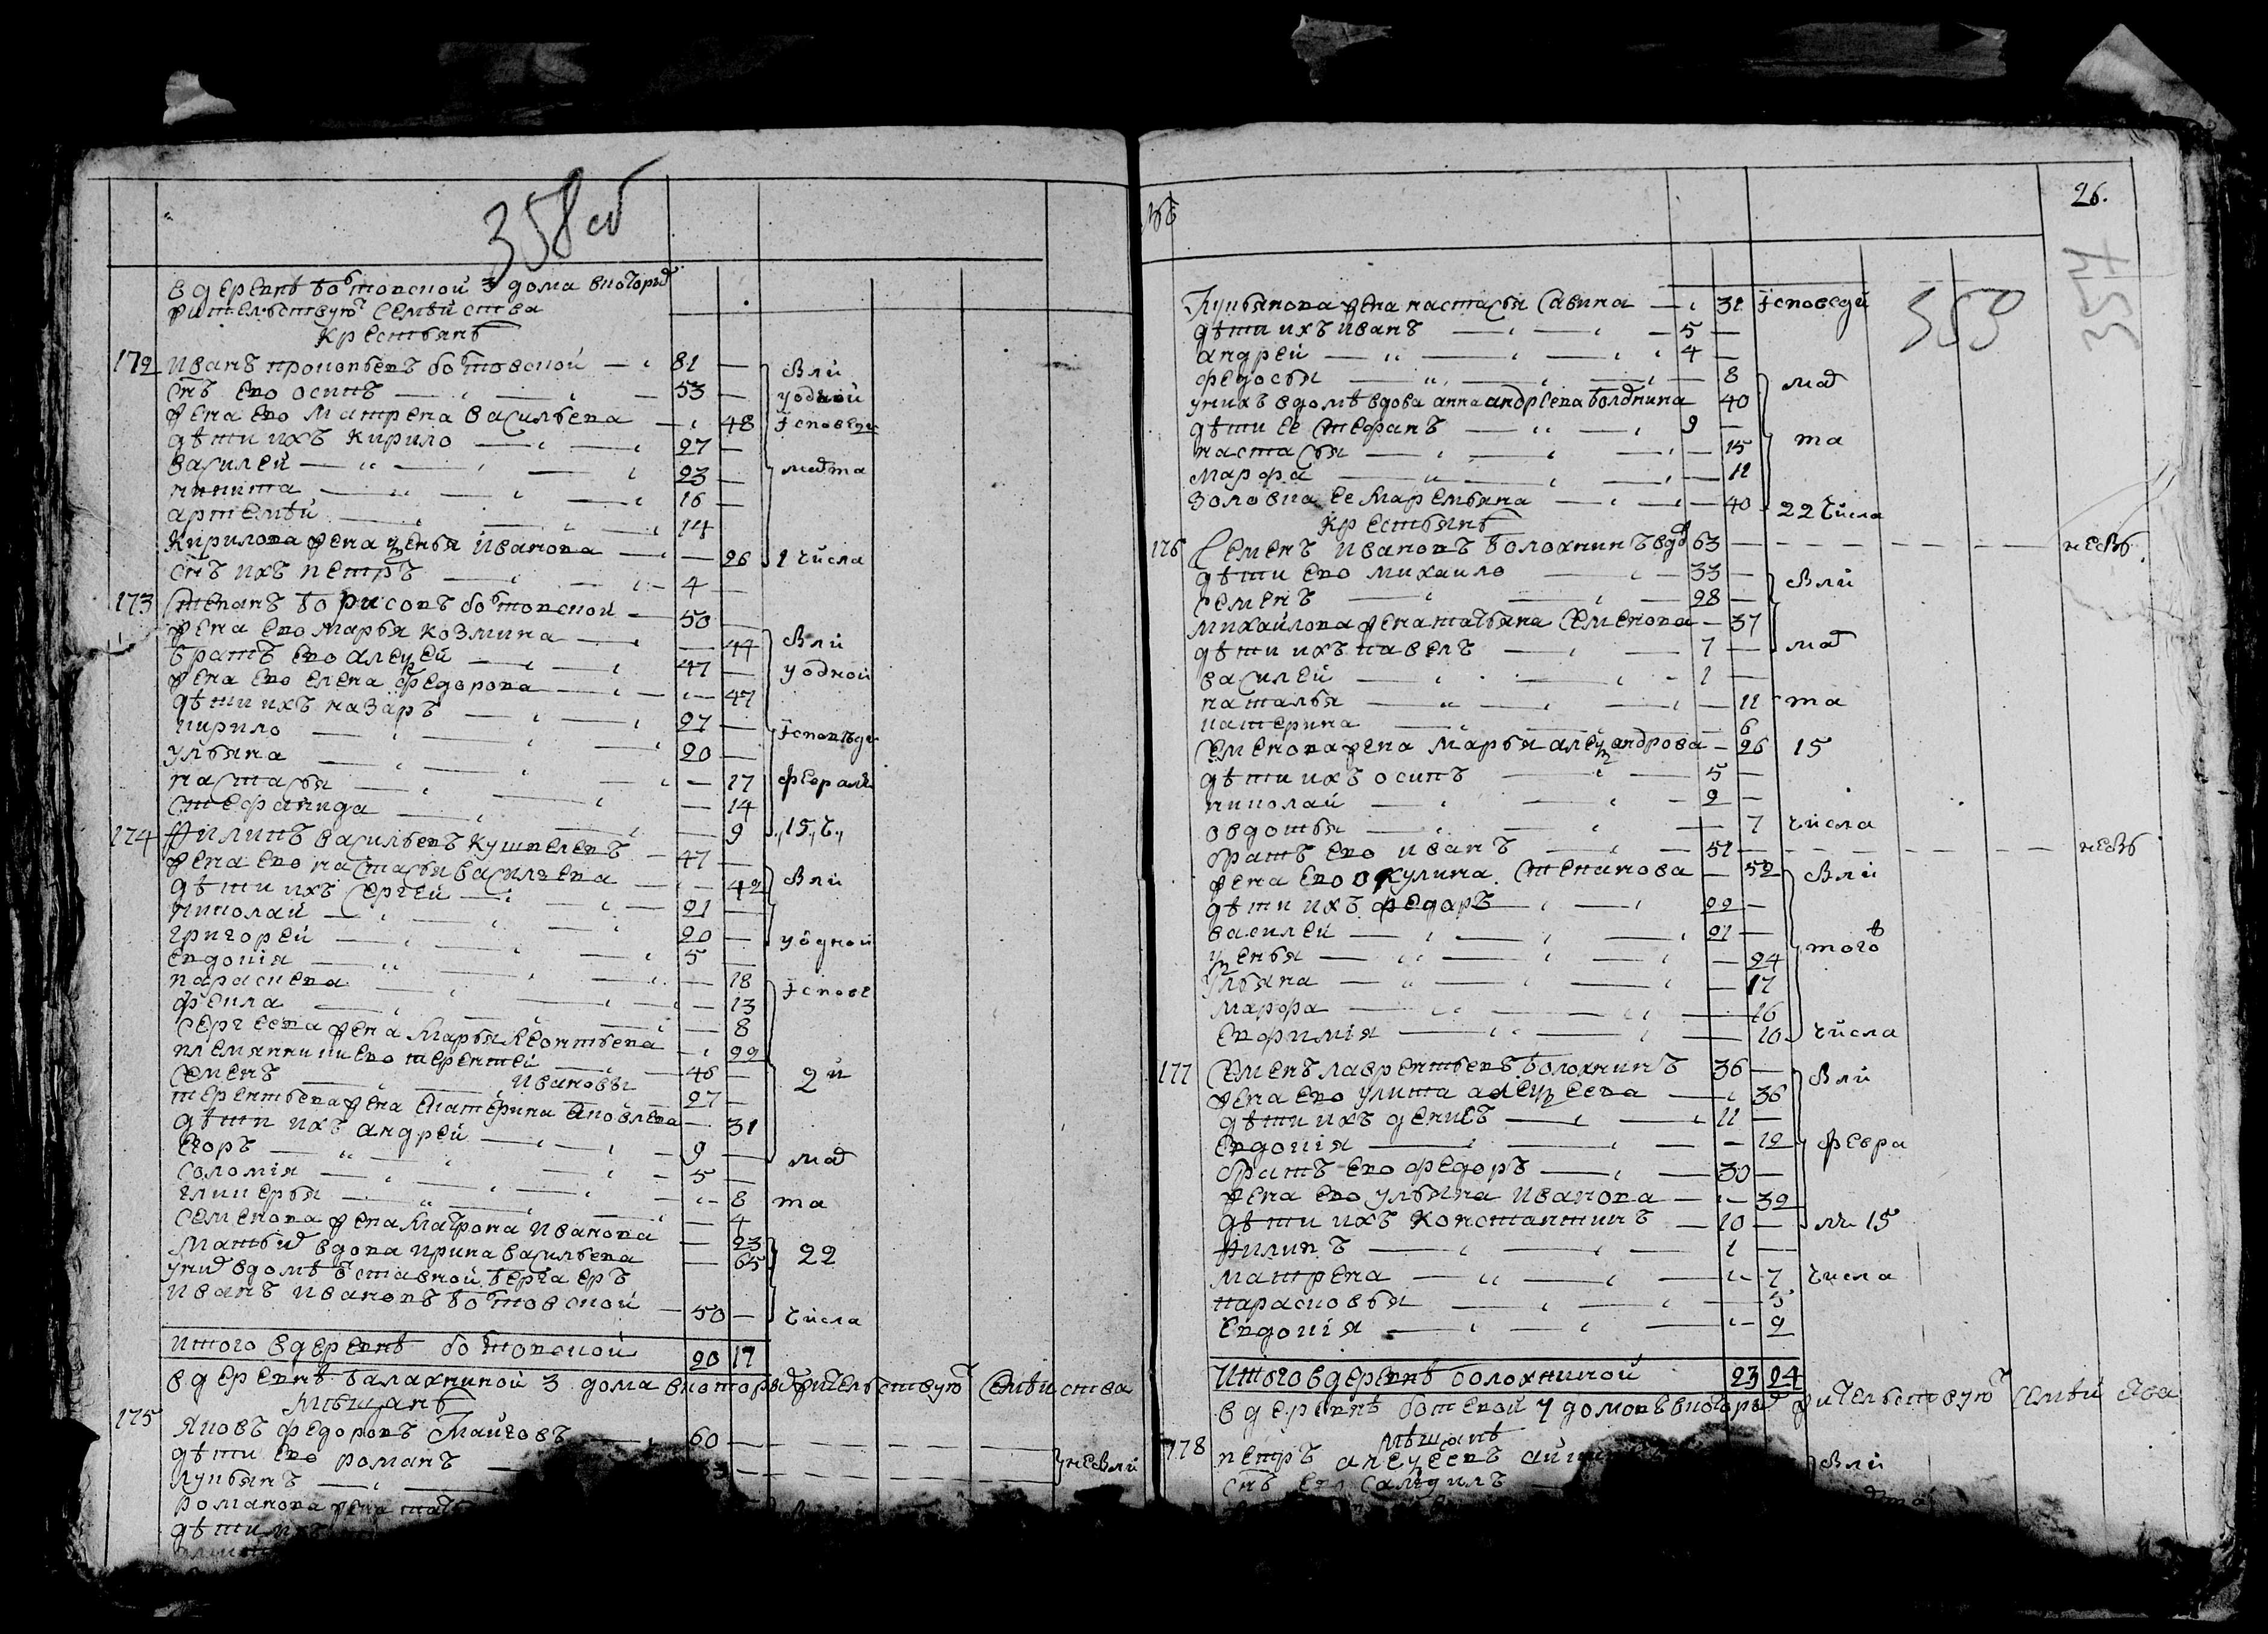 358 об
в деревнѣ ботовской 3 дома в которыхъ
жителствуютъ семействa
крестьянѣ
172 Иванъ прокопьевъ ботовской 81 — Были
снъ ево осипъ 53 — у одной
жена ево матрена васильева — 48 исповеди
дѣти ихъ кирило 27 —
василей 23 — марта
никита 16 —
артемѣй 14 —
кирилова жена ѯенья иванова — 26 1 числа
снъ ихъ петръ 4 —
173 Степанъ борисовъ ботовской 50 —
жена ево марья козмина — 44 Были
братъ ево алеѯей 47 — у одной
жена ево елена федорова — 47
дѣти ихъ назаръ 27 — исповѣди
кирило 20 —
ульяна — 17 февраля
настасья — 14
стефанида — 9 15 ч.
174 Филипъ васильевъ кушнелевъ 47 —
жена ево настасья васильева — 42 Были
дѣти ихъ сергей 21 —
николай 20 — у одной
григорей 5 —
евдокия — 18 исповѣ
параскева — 13
фекла — 8
сергеева жена марья леонтьева — 22
племянники ево терентей 46 — 2 й
семенъ ивановы 27 —
терентьева жена екатерина яковлева — 31
дѣти ихъ андрей 9 — мар
егоръ 5 —
соломия — 8 та
гликерья — 4
семенова жена матрона иванова — 23
мать ихъ вдова ирина васильева — 65 22
у нихъ в домѣ отставной
иванъ ивановъ ботовской 50 — числа
итого в деревнѣ ботовской 20 17
в деревнѣ балахниной 3 дома в которыхъ жителствуютъ семейства
мещанѣ
175 Яковъ федоровъ 60 —
дѣти ево романъ — небыли
лукьянъ
романова жена
дѣти их
26.
359
354
Лукьянова жена настасья савина — 31 исповеди
дѣти ихъ иванъ 5 —
андрей 4 —
федосья — 8 мар
у нихъ в домѣ вдова анна андреева болднина — 40
дѣти ее стефанъ 9 —
настасья — 15 та
марфа — 11
золовка ее маремьяна — 40 22 числа
крестьянѣ
176 Семенъ ивановъ болохнинъ вдов 63 — небы
дѣти ево михаило 33 — Были
семенъ 28 —
михайлова жена татьяна семенова — 37
дѣти ихъ павелъ 7 — мар
василей 1 —
наталья — 11 та
катерина — 6
семенова жена марья алеѯандрова — 26 15
дѣти ихъ осипъ 5 —
николай 2 —
овдотья — 7 числа
братъ ево иванъ 51 — небы
жена ево окулина степанова — 52 Были
дѣти ихъ федоръ 22 —
василей 21 —
ѯенья — 24 того
ульяна — 17
марфа — 16
евфимия — 10 числа
177 Семенъ лаврентьевъ болохнинъ 36 — Были
жена ево улита алеѯеева — 36
дѣти ихъ денисъ 11 —
евдокия — 12 февра
братъ ево федоръ 30 —
жена ево ульяна иванова — 32
дѣти ихъ константинъ 10 — ля 15
филипъ 1 —
матрена — 7 числа
парасковья — 5
евдокия — 2
Итого в деревнѣ болохниной 23 24
в деревнѣ ботевой 7 домовъ в которыхъ жителствуютъ семейства
мѣщанѣ
178 петръ алеѯеевъ Были
снъ ево